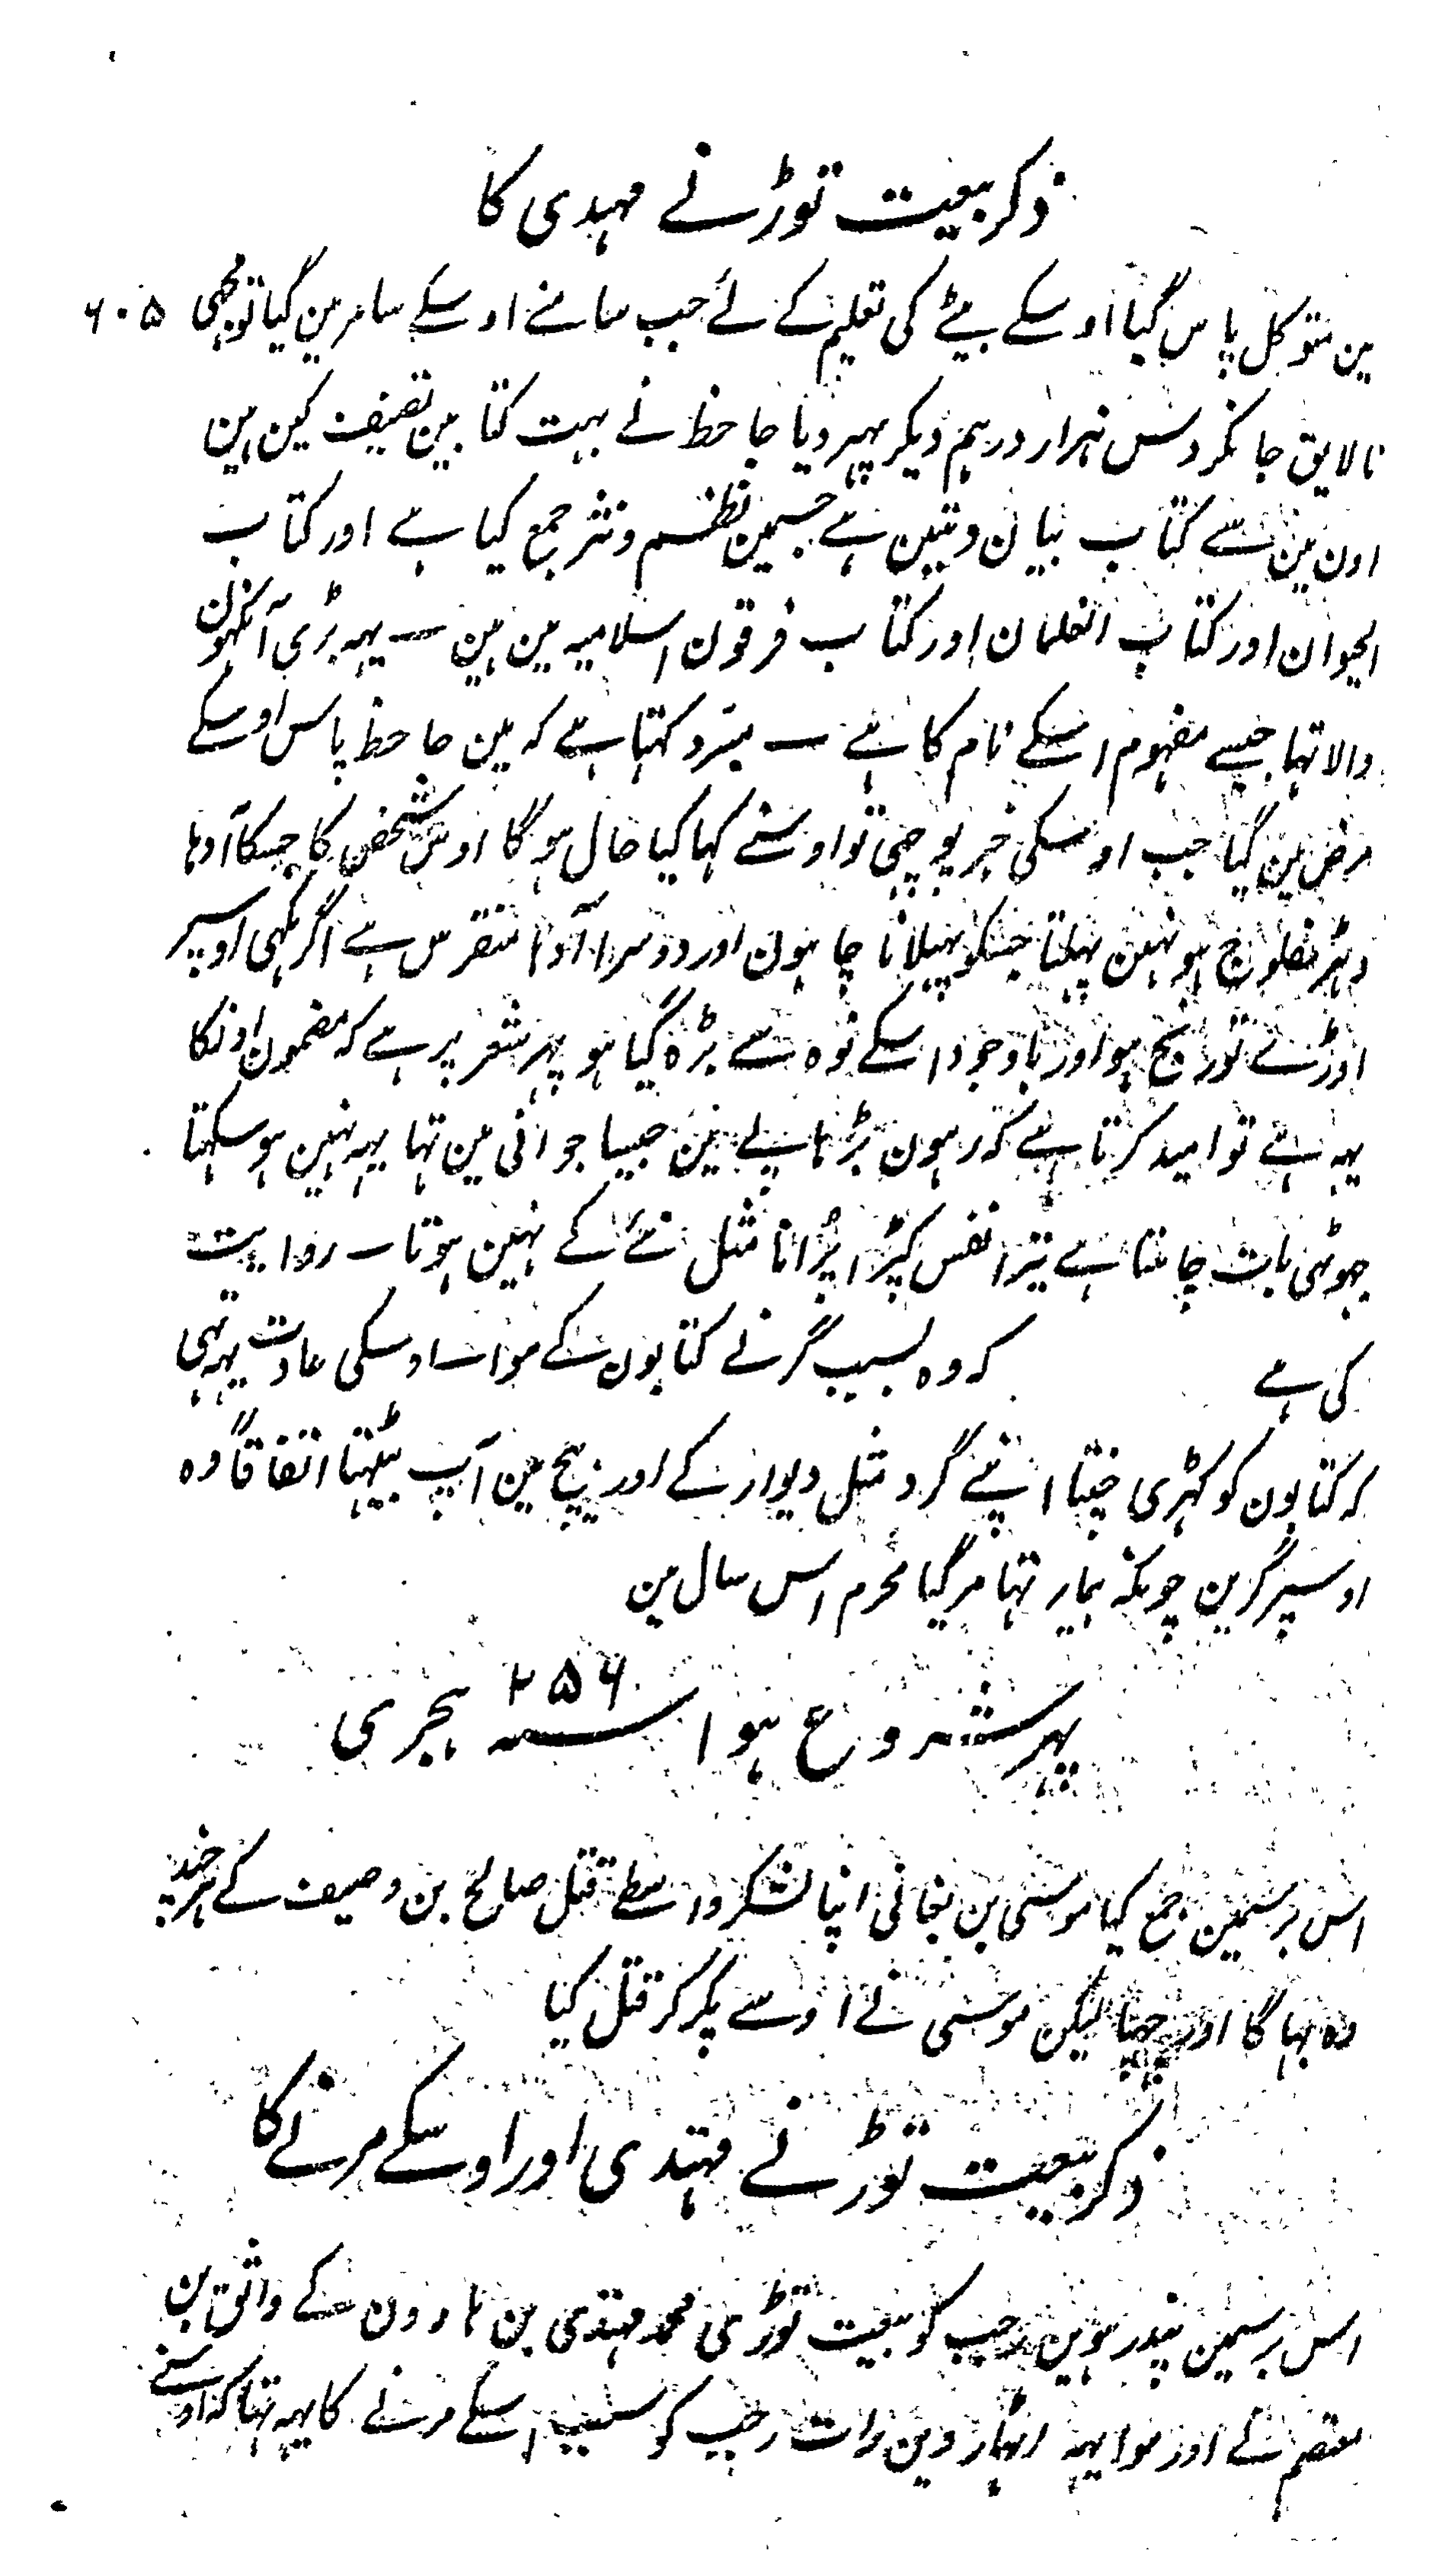 ذکر بیعت توڑنے مہدی کا
۶۰۵
ین متوکل پاس گیا اوسکے بیٹے کی تعلیم کے لئے جب سامنے اوسکے سامرین گیا تو مجھی
نالایق جانکر دس ہزار درہم دیکر پہیر دیا جاحظ نے بہت کتابین تصنیف کین ہین
اون مین سے کتاب بیان و تبین ہے جسمین نظم و نثر جمع کیا ہے اور کتاب
الحیوان اور کتاب الغلمان اور کتاب فرقون اسلامیہ مین ہین ۔ یہہ بڑی آنکہون
والا تہا جیسے مفہوم اسکے نام کا ہے ۔ مبرّد کہتا ہے کہ مین جاحظ پاس اوسکے
مرض مین گیا جب اوسکی خبر پوچہی تو اوسنے کہا کیا حال ہوگا اوس شخص کا جسکا آدہا
دہڑ مفلوج ہو نہین ہلتا جسکو ہلانا چاہون اور دوسرا آدہا منقرس ہے اگر مکہی اوسپر
اوڑے تو رنج ہو اور باوجود اسکے نوہ سے بڑہ گیا ہو پہر شعر پر ہے کہ مضمون اونکا
یہہ ہے تو امید کرتا ہے کہ رہون بڑہاپے مین جیسا جوانی مین تہا یہہ نہین ہوسکہتا
جہوٹہی بات چاہتا ہے تیرا نفس کپڑا پُرانا مثل نئے کے نہین ہوتا ۔ روایت
کی ہے کہ وہ بسبب گرنے کتابون کے موا ۔ اوسکی عادت یہہ تہی
کہ کتابون کو کہڑی چنتا اپنے گرد مثل دیوار کے اور بیچ مین آپ بیٹہتا اتفاقاً وہ
اوسپر گرین چونکہ بیمار تہا مرگیا محرم اس سال مین
پہر شروع ہوا سنہ ۲۵۶ ہجری
اس برسمین جمع کیا موسی بن بغا نی اپنا لشکر واسطے قتل صالح بن وصیف کے ہرچند
وہ بہاگا اور چہپا لیکن موسی نے اوسے پکرکر قتل کیا
ذکر بیعت توڑنے مہتدی اور اوسکے مرنے کا
اس برسمین پندرہوین رجب کو بیعت توڑی محمد مہتدی بن ہارون کے واثق بن
معتصم کے اور موا یہہ اٹہاروین رات رجب کو سبب اسکے مرنے کا یہہ تہا کہ اوسنے